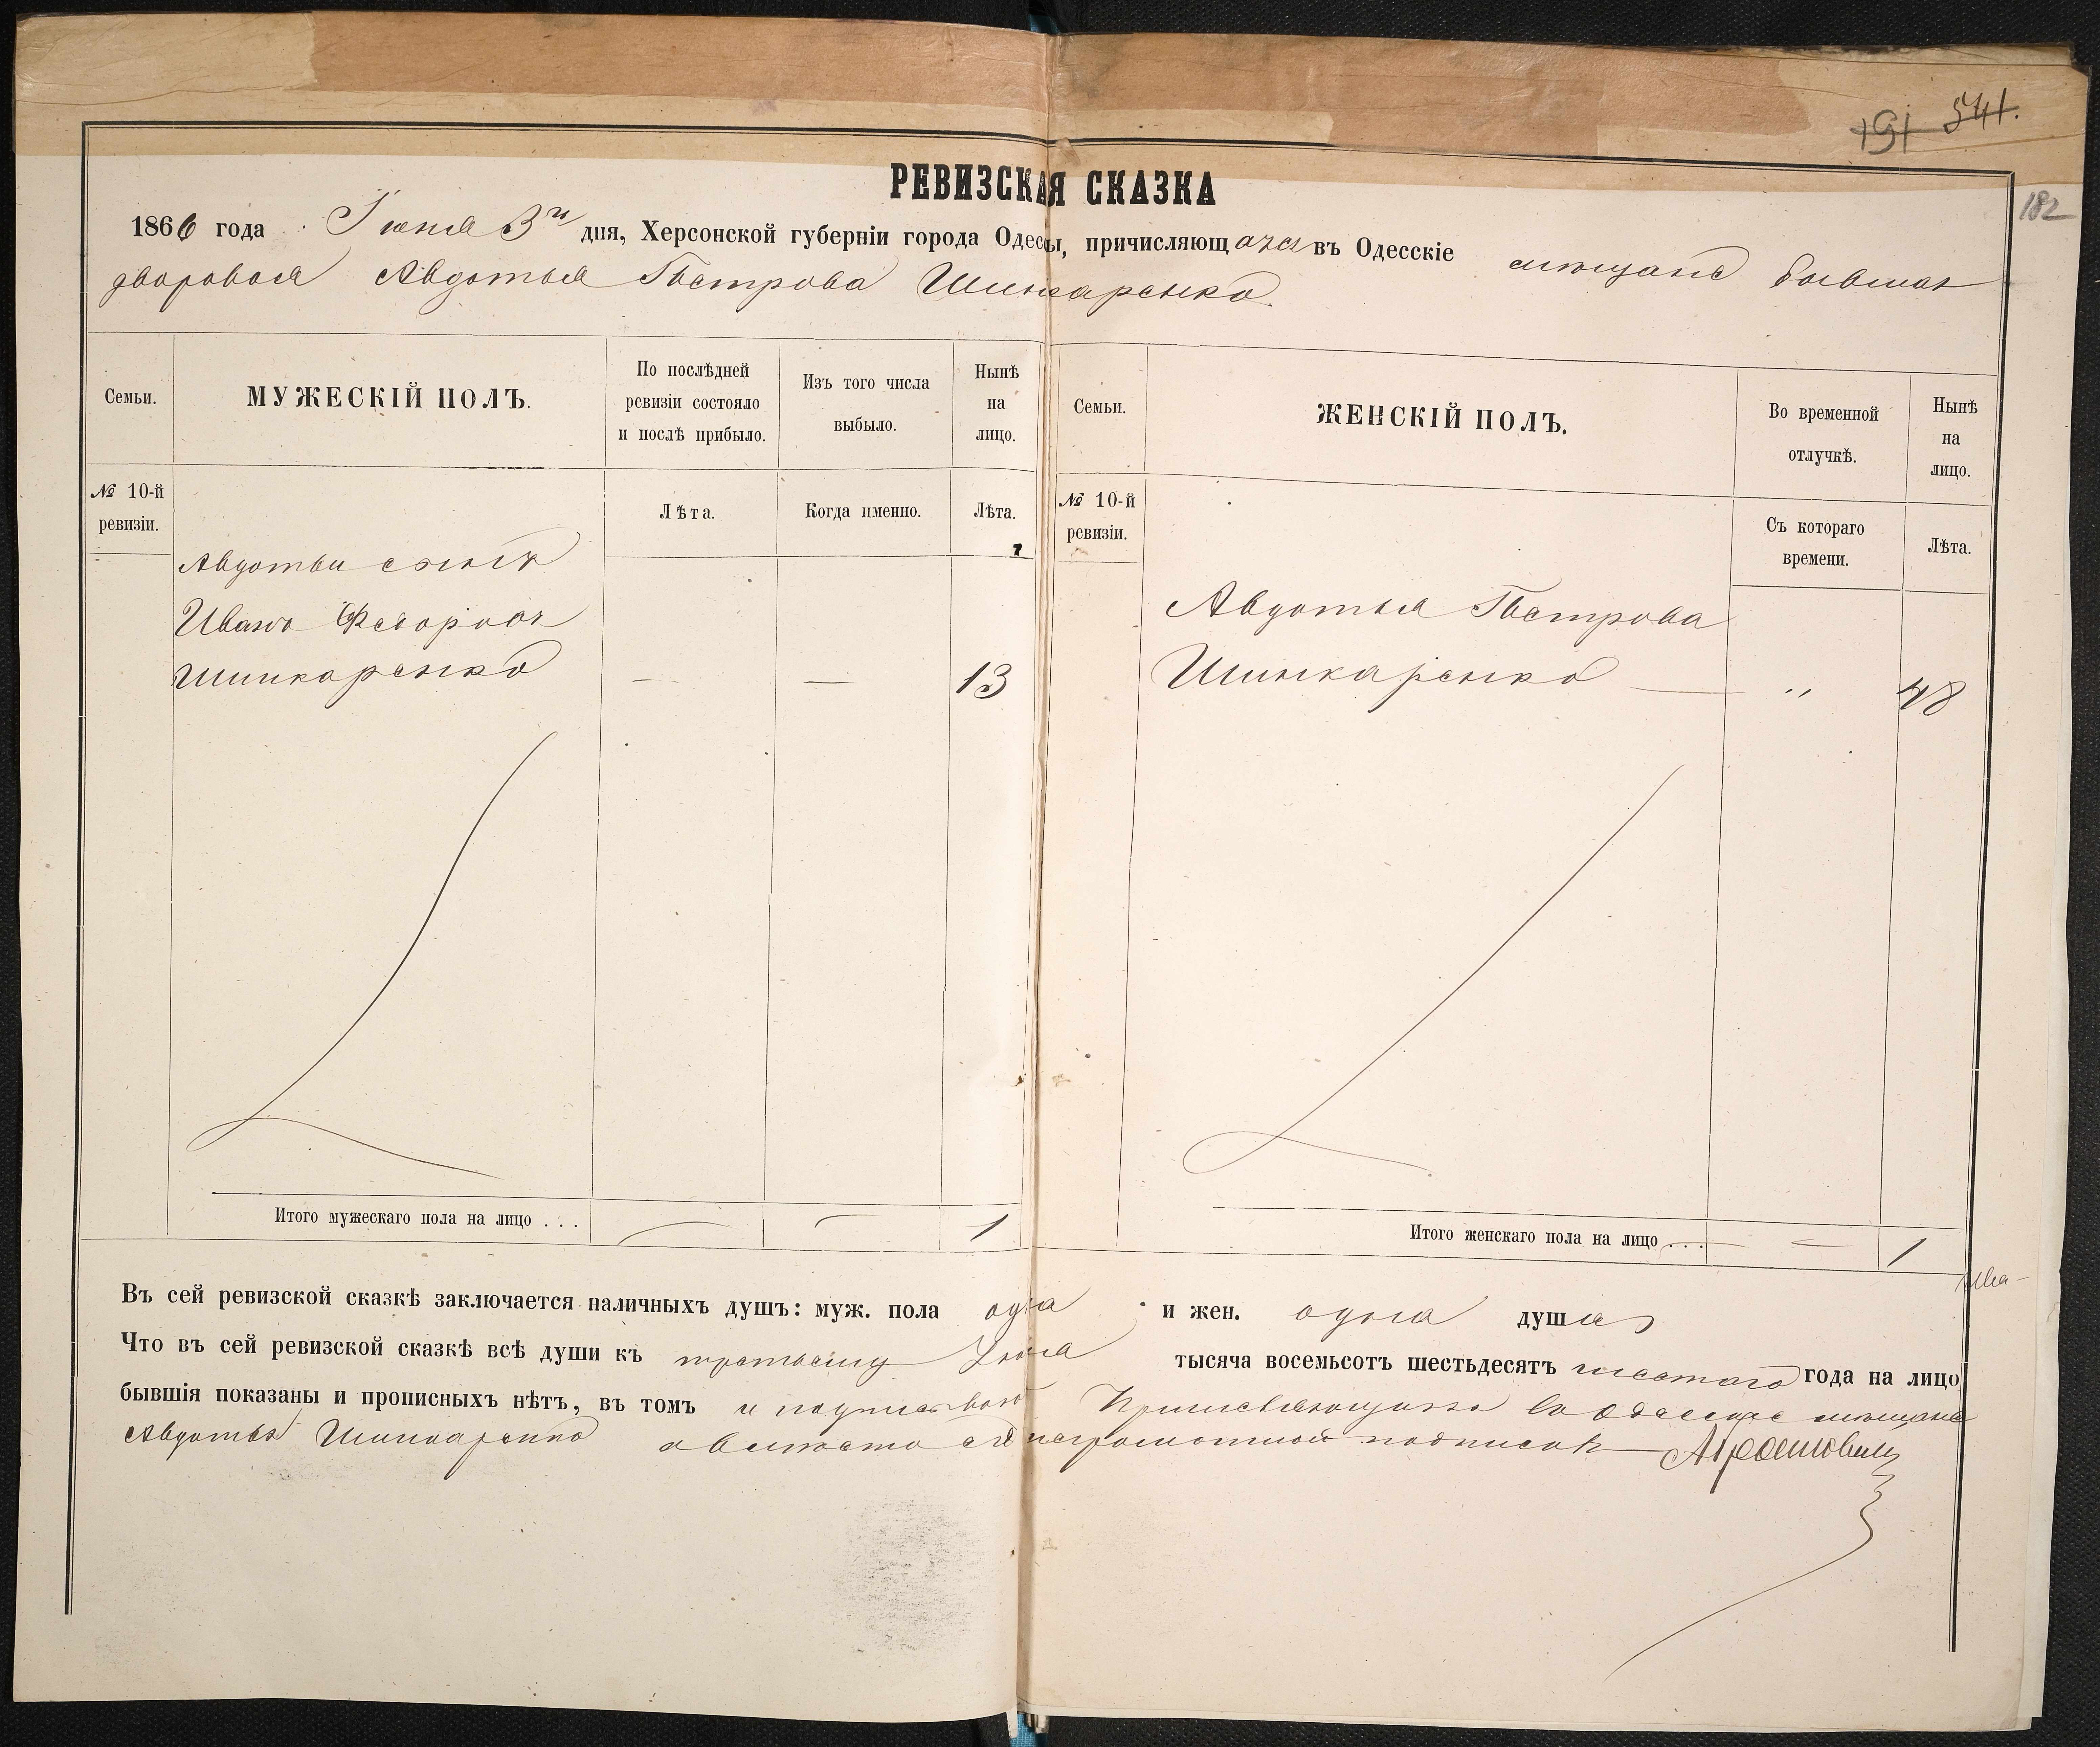 191 541.
182
РЕВИЗСКАЯ СКАЗКА
1866 года Іюня 3го дня, Херсонской губерніи города Одессы, причисляющаяся въ Одесскіе мѣщане бывшая
дворовая Авдотья Петрова Шинкаренко
Семьи.
МУЖЕСКІЙ ПОЛЪ.
По послѣдней ревизіи состояло и послѣ прибыло.
Изъ того числа выбыло.
Нынѣ на лицо.
Семьи.
ЖЕНСКІЙ ПОЛЪ.
Во временной отлучкѣ.
Нынѣ на лицо.
№ 10-й ревизіи.
Лѣта.
Когда именно.
Лѣта.
№ 10-й ревизіи.
Съ котораго времени.
Лѣта.
Авдотьи сынъ
Иванъ Федоровъ
Шинкаренко — — 13
Авдотья Петрова
Шинкаренко — " 48
Итого мужескаго пола на лицо . . . — — 1
Итого женскаго пола на лицо . . . — — 1
Въ сей ревизской сказкѣ заключается наличныхъ душъ: муж. пола одна и жен. одна душа
Что въ сей ревизской сказкѣ всѣ души къ третьему Іюня тысяча восемьсотъ шестьдесятъ шестаго года на лицо
бывшія показаны и прописныхъ нѣтъ, въ томъ и подписываю въ Одесскіе мѣщане
Авдотья Шинкаренко а вмѣсто ея неграмотной